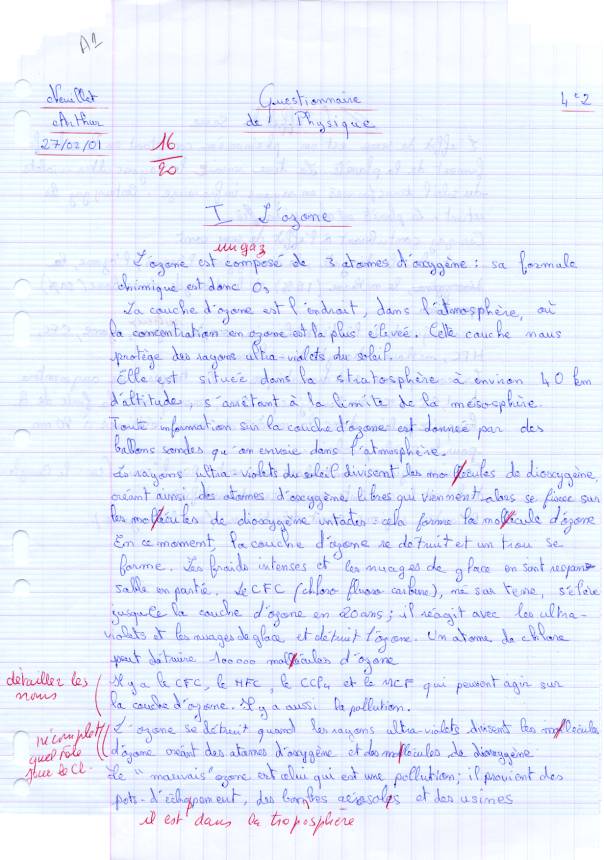 A1
Neuillet
Arthur
27/02/01
Questionnaire
de Physique
4e2
16
20
I L'ozone
un gaz
L'ozone est composé de 3 atomes d'oxygène : sa formule
chimique est donc O3
La couche d'ozone est l'endroit, dans l'atmosphère, où
la concentration en ozone est la plus élevée. Cette couche nous
protège des rayons ultra-violets du soleil.
Elle est située dans la stratosphère à environ 40 km
d'altitude, s'arrêtant à la limite de la mésosphère.
Toute information sur la couche d'ozone est donnée par des
ballons sondes qu'on envoie dans l'atmosphère.
Les rayons ultra-violets du soleil divisent les mollécules de dioxygène,
créant ainsi des atomes d'oxygène libres qui viennent alors se fixer sur
les mollécules de dioxygène intactes : cela forme la mollécule d'ozone
En ce moment, la couche d'ozone se détruit et un trou se
forme. Les froids intenses et les nuages de glace en sont respon-
sable en partie. Le CFC (chloro fluoro carbone), né sur terre, s'élève
jusqu'à la couche d'ozone en 20 ans ; il réagit avec les ultra-
violets et les nuages de glace et détruit l'ozone. Un atome de chlore
peut détruire 100 000 mollécules d'ozone
détaillez les
noms
Il y a le CFC, le HFC, le CCl4 et le MCF qui peuvent agir sur
la couche d'ozone. Il y a aussi la pollution.
incomplet
quel rôle
joue le Cl.
L'ozone se détruit quand les rayons ultra-violets divisent les mollécules
d'ozone créant des atomes d'oxygène et des mollécules de dioxygène
Le "mauvais" ozone est celui qui est une pollution ; il provient des
pots-d'échappement, des bombes aérosols et des usines
il est dans la troposphère